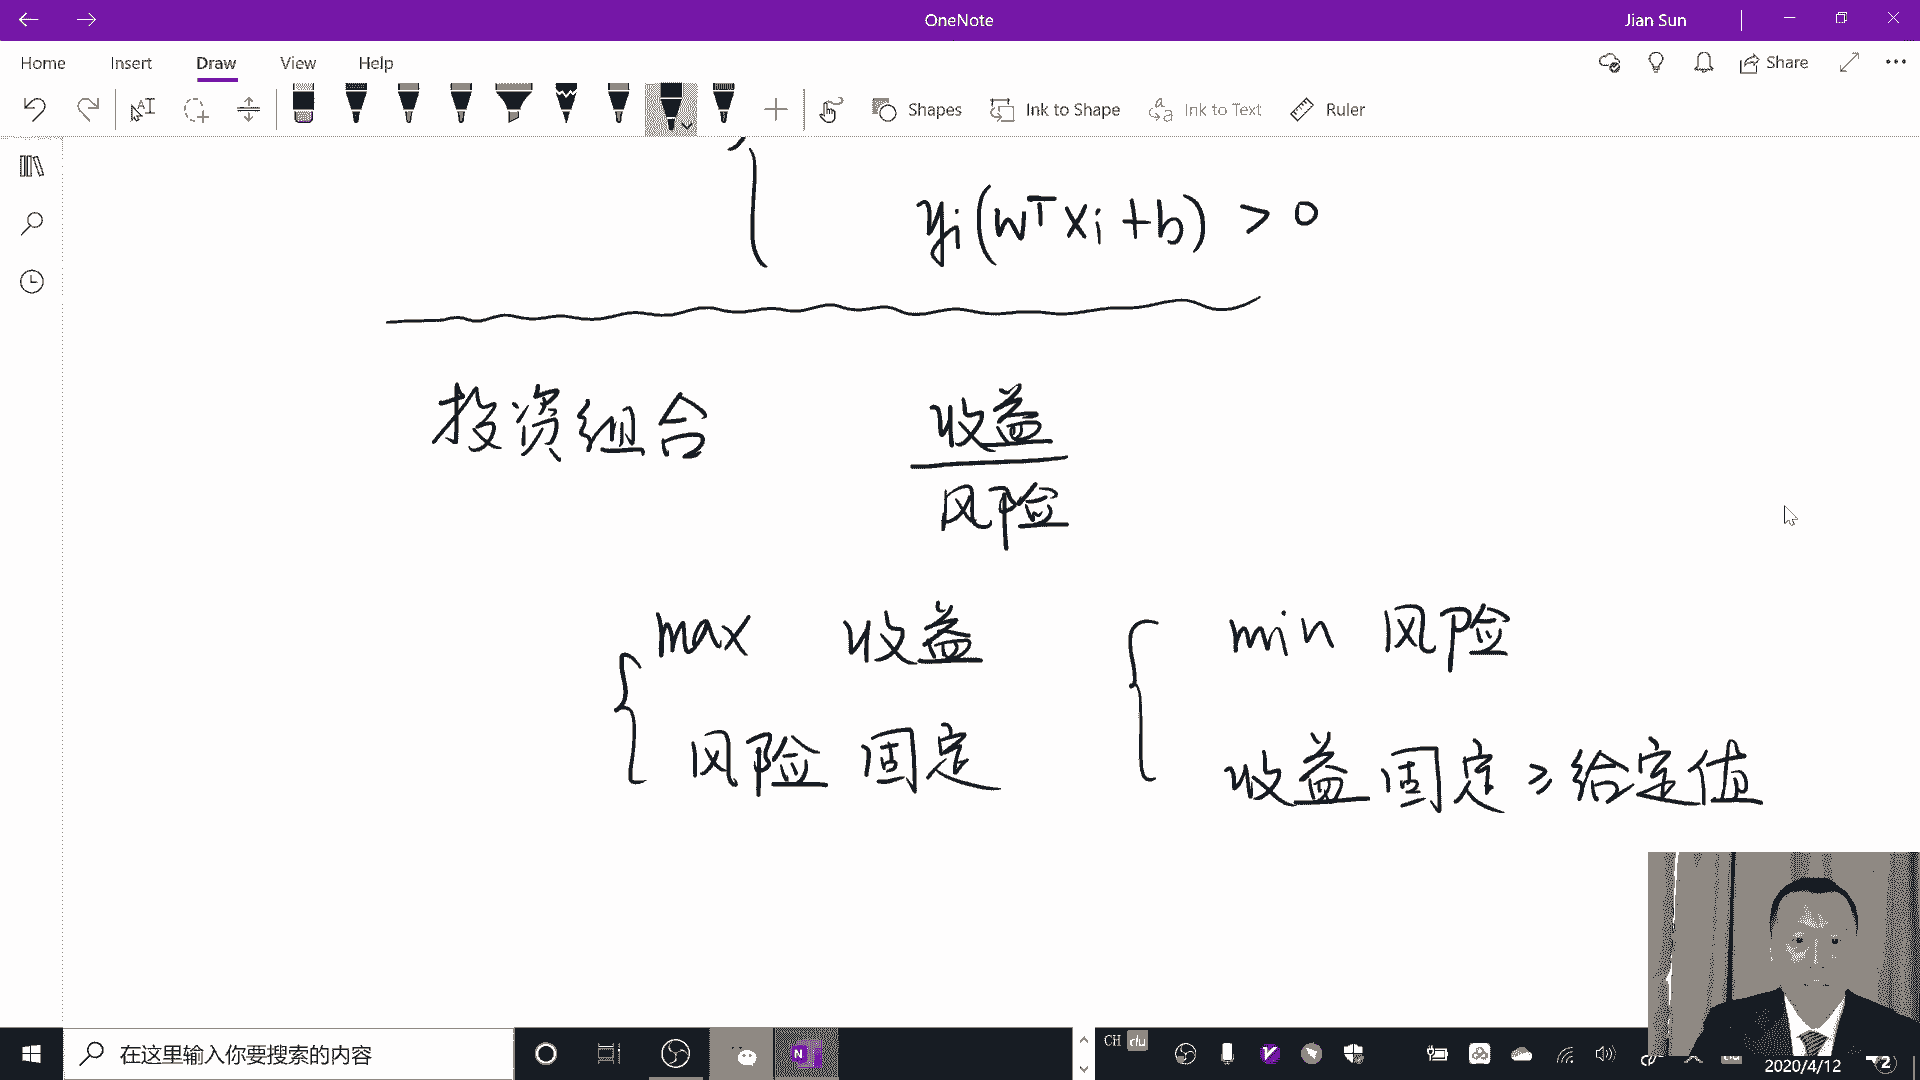 OneNote
Jian Sun
Home Insert Draw View Help
Share
Shapes Ink to Shape Ink to Text Ruler
yi(wᵀxi+b) > 0
投资组合
收益
风险
max 收益
风险 固定
min 风险
收益 固定 ≥ 给定值
在这里输入你要搜索的内容
CH
2020/4/12
2